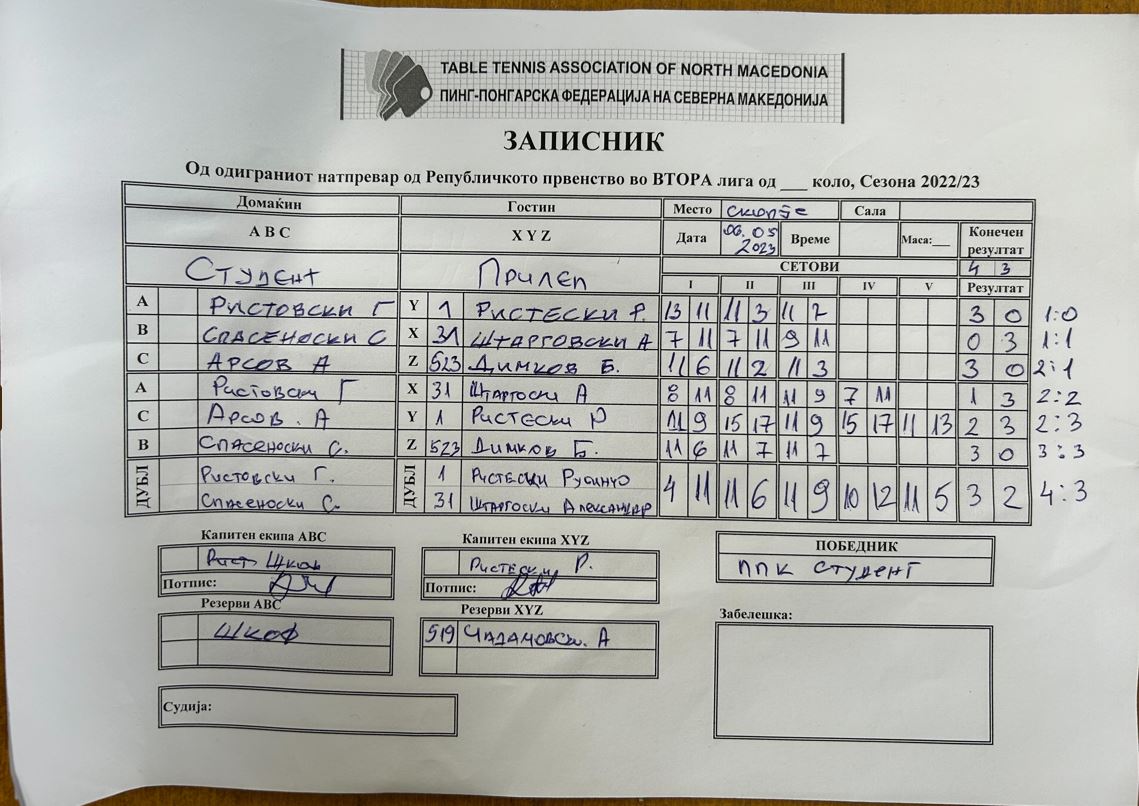 TABLE TENNIS ASSOCIATION OF NORTH MACEDONIA
ПИНГ-ПОНГАРСКА ФЕДЕРАЦИЈА НА СЕВЕРНА МАКЕДОНИЈА
ЗАПИСНИК
Од одиграниот натпревар од Републичкото првенство во ВТОРА лига од ___ коло, Сезона 2022/23
Домаќин Гостин Место Скопје Сала
A B C X Y Z Дата 06.05 2023 Време Маса:___ Конечен резултат
Студент Прилеп СЕТОВИ 4 3
I II III IV V Резултат
A Ристовски Г Y 1 Ристески Р. 13 11 11 3 11 7 3 0 1:0
B Спасеноски С X 31 Штарговски А 7 11 7 11 9 11 0 3 1:1
C Арсов А Z 523 Димков Б. 11 6 11 2 11 3 3 0 2:1
A Ристовски Г X 31 Штаргоски А 8 11 8 11 11 9 7 11 1 3 2:2
C Арсов . А Y 1 Ристески Р 11 9 15 17 11 9 15 17 11 13 2 3 2:3
B Спасеноски С. Z 523 Димков Б. 11 6 11 7 11 7 3 0 3:3
ДУБЛ Ристовски Г. ДУБЛ 1 Ристески Русинчо 4 11 11 6 11 9 10 12 11 5 3 2 4:3
Спасеноски С. 31 Штаргоски Александар
Капитен екипа ABC Капитен екипа XYZ ПОБЕДНИК
Ристески Р. ППК Студент
Потпис: Потпис:
Резерви ABC Резерви XYZ Забелешка:
Шкоф 519 Чадамовски. А
Судија: